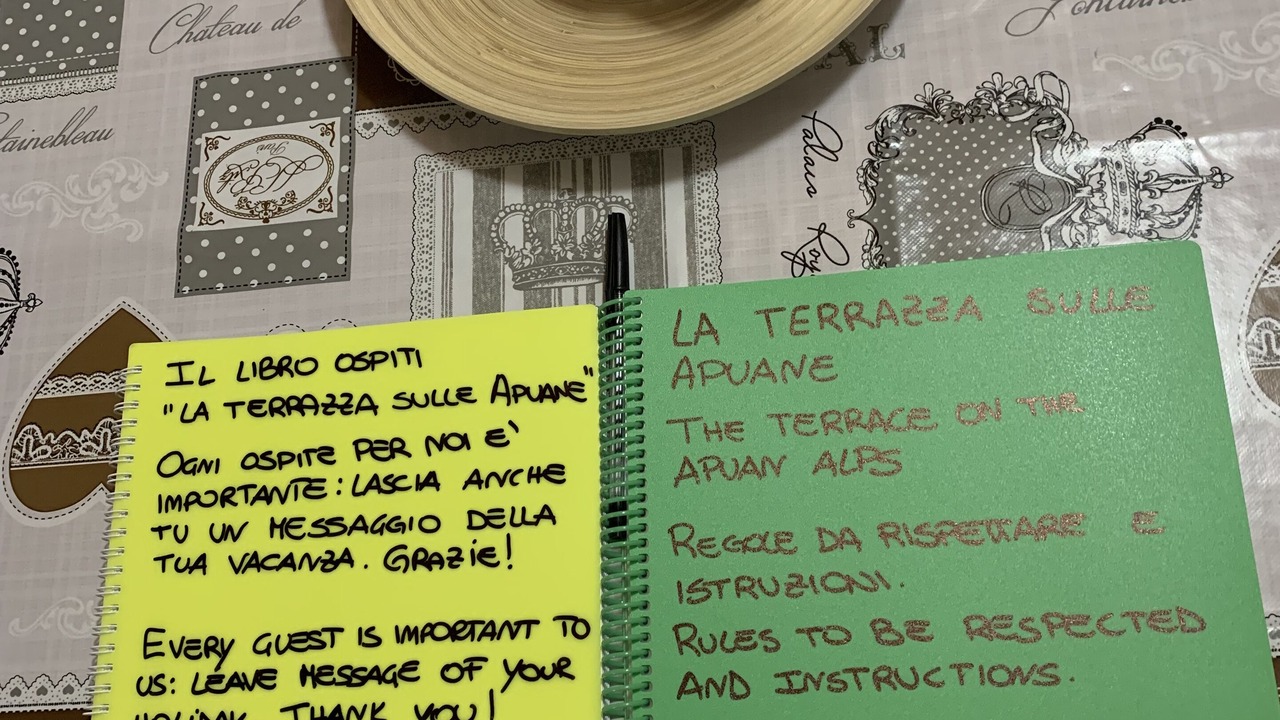 Chateau de
Palais Roy
IL LIBRO OSPITI
"LA TERRAZZA SULLE APUANE"
OGNI OSPITE PER NOI E'
IMPORTANTE: LASCIA ANCHE
TU UN MESSAGGIO DELLA
TUA VACANZA. GRAZIE!
EVERY GUEST IS IMPORTANT TO
US: LEAVE MESSAGE OF YOUR
HOLIDAY. THANK YOU!
LA TERRAZZA SULLE
APUANE
THE TERRACE ON THE
APUAN ALPS
REGOLE DA RISPETTARE E
ISTRUZIONI.
RULES TO BE RESPECTED
AND INSTRUCTIONS.